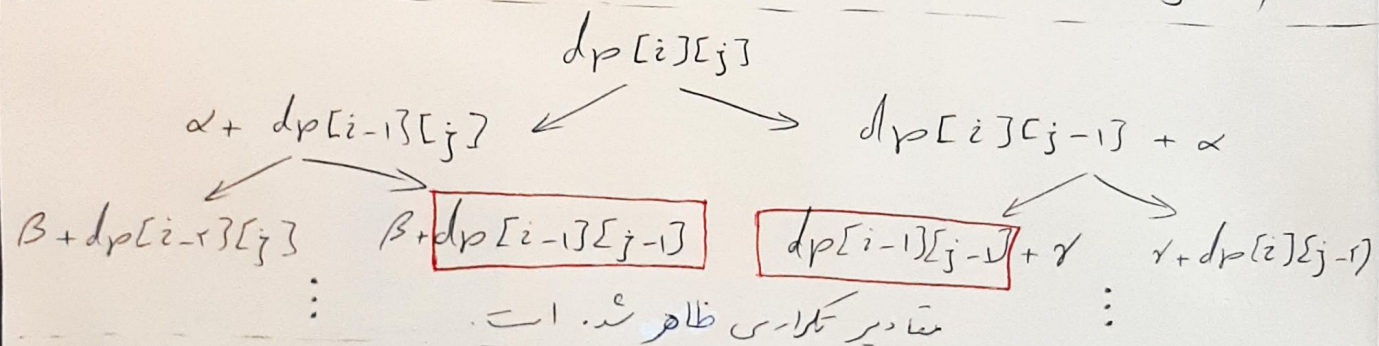 dp[i][j]
α + dp[i-1][j] dp[i][j-1] + α
β + dp[i-۲][j] β + dp[i-1][j-1] dp[i-1][j-1] + γ γ + dp[i][j-۲]
⋮ ⋮
مقادیر تکراری ظاهر شده است.